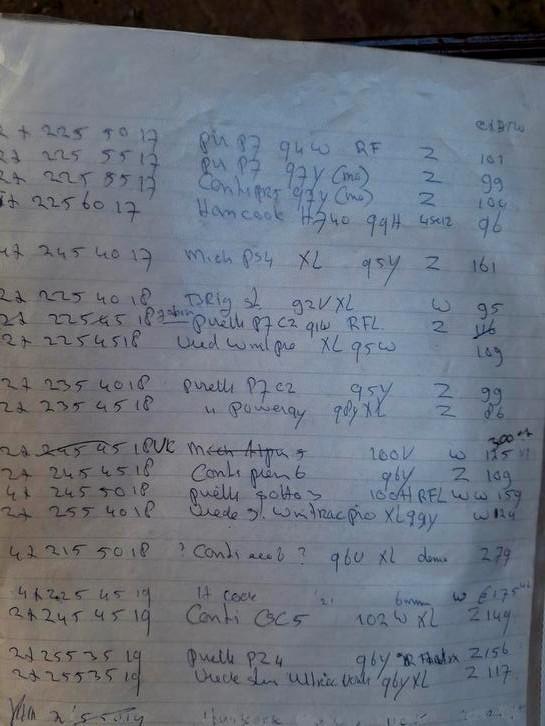 2x 225 50 17 pir P7 94W RF Z 101
2x 225 55 17 pir P7 97Y (mo) Z 99
2x 225 55 17 Conti 97Y (mo) Z 104
225 60 17 Hancook H740 99H 96
4x 245 40 17 Mich PS4 XL 95Y Z 161
2x 225 40 18 BRig 92V XL W 95
2x 225 45 18 Pirelli P7 C2 91W RFL Z 116
2x 225 45 18 Vred XL 95W 109
2x 235 40 18 pirelli P7 C2 95Y Z 99
2x 235 45 18 " Powergy 98y XL Z 86
300
2x 245 45 18 100V W 135
2x 245 45 18 Conti prem 6 96Y Z 109
4x 245 50 18 pirelli sotto 3 100H RFL W W 159
2x 255 40 18 Vrede wintrac pro XL 99y W 124
4x 215 50 18 ? Conti eco 6 ? 96V XL demo 279
4x 225 45 19 H cook '21 6mm W € 175
2x 245 45 19 Conti CSC5 102W XL Z 149
2x 255 35 19 Pirelli PZ4 96Y Z 156
2x 255 35 19 Vrede 96y XL Z 117